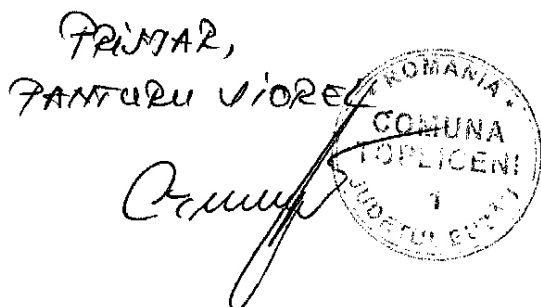 PRIMAR,
PANTURU VIOREL
* ROMANIA *
COMUNA
TOPLICENI
1
JUDETUL BUZAU